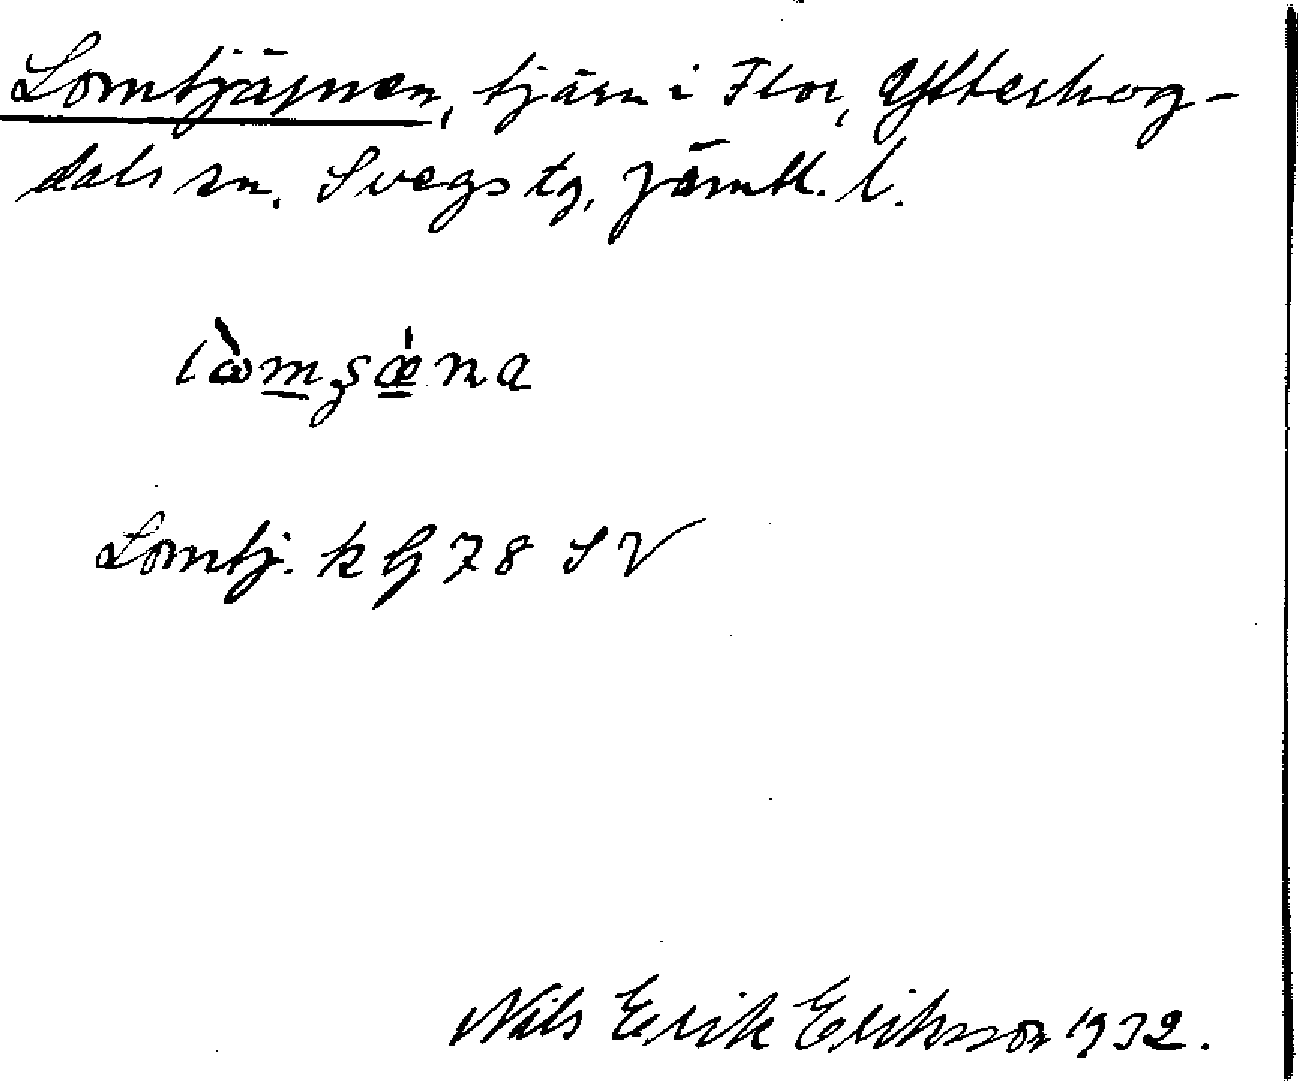 Lomtjärnen, tjärn i Flor, Ytterhog-
dals sn. Svegs tg, Jämtl. l.
Lomtj. k bl 78 SV
Nils Erik Eriksson 1932.